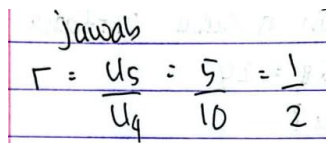 jawab
r = U5/U4 = 5/10 = 1/2